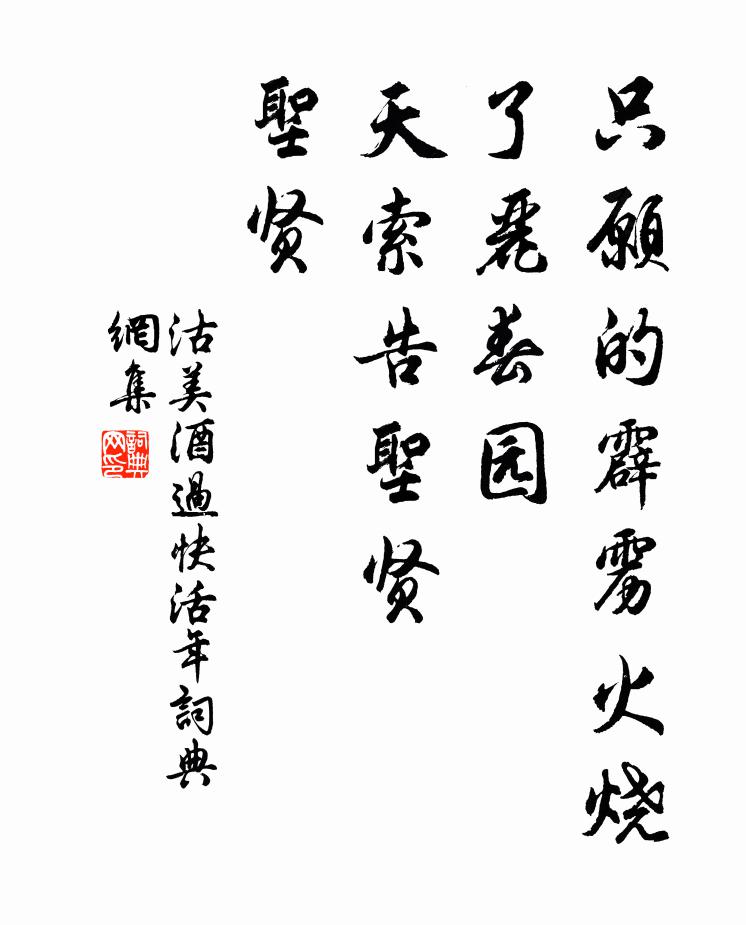 只願的霹雳火烧
了麗春园
天索告聖贤
聖贤
沽美酒過快活年詞典
網集
詞典网印